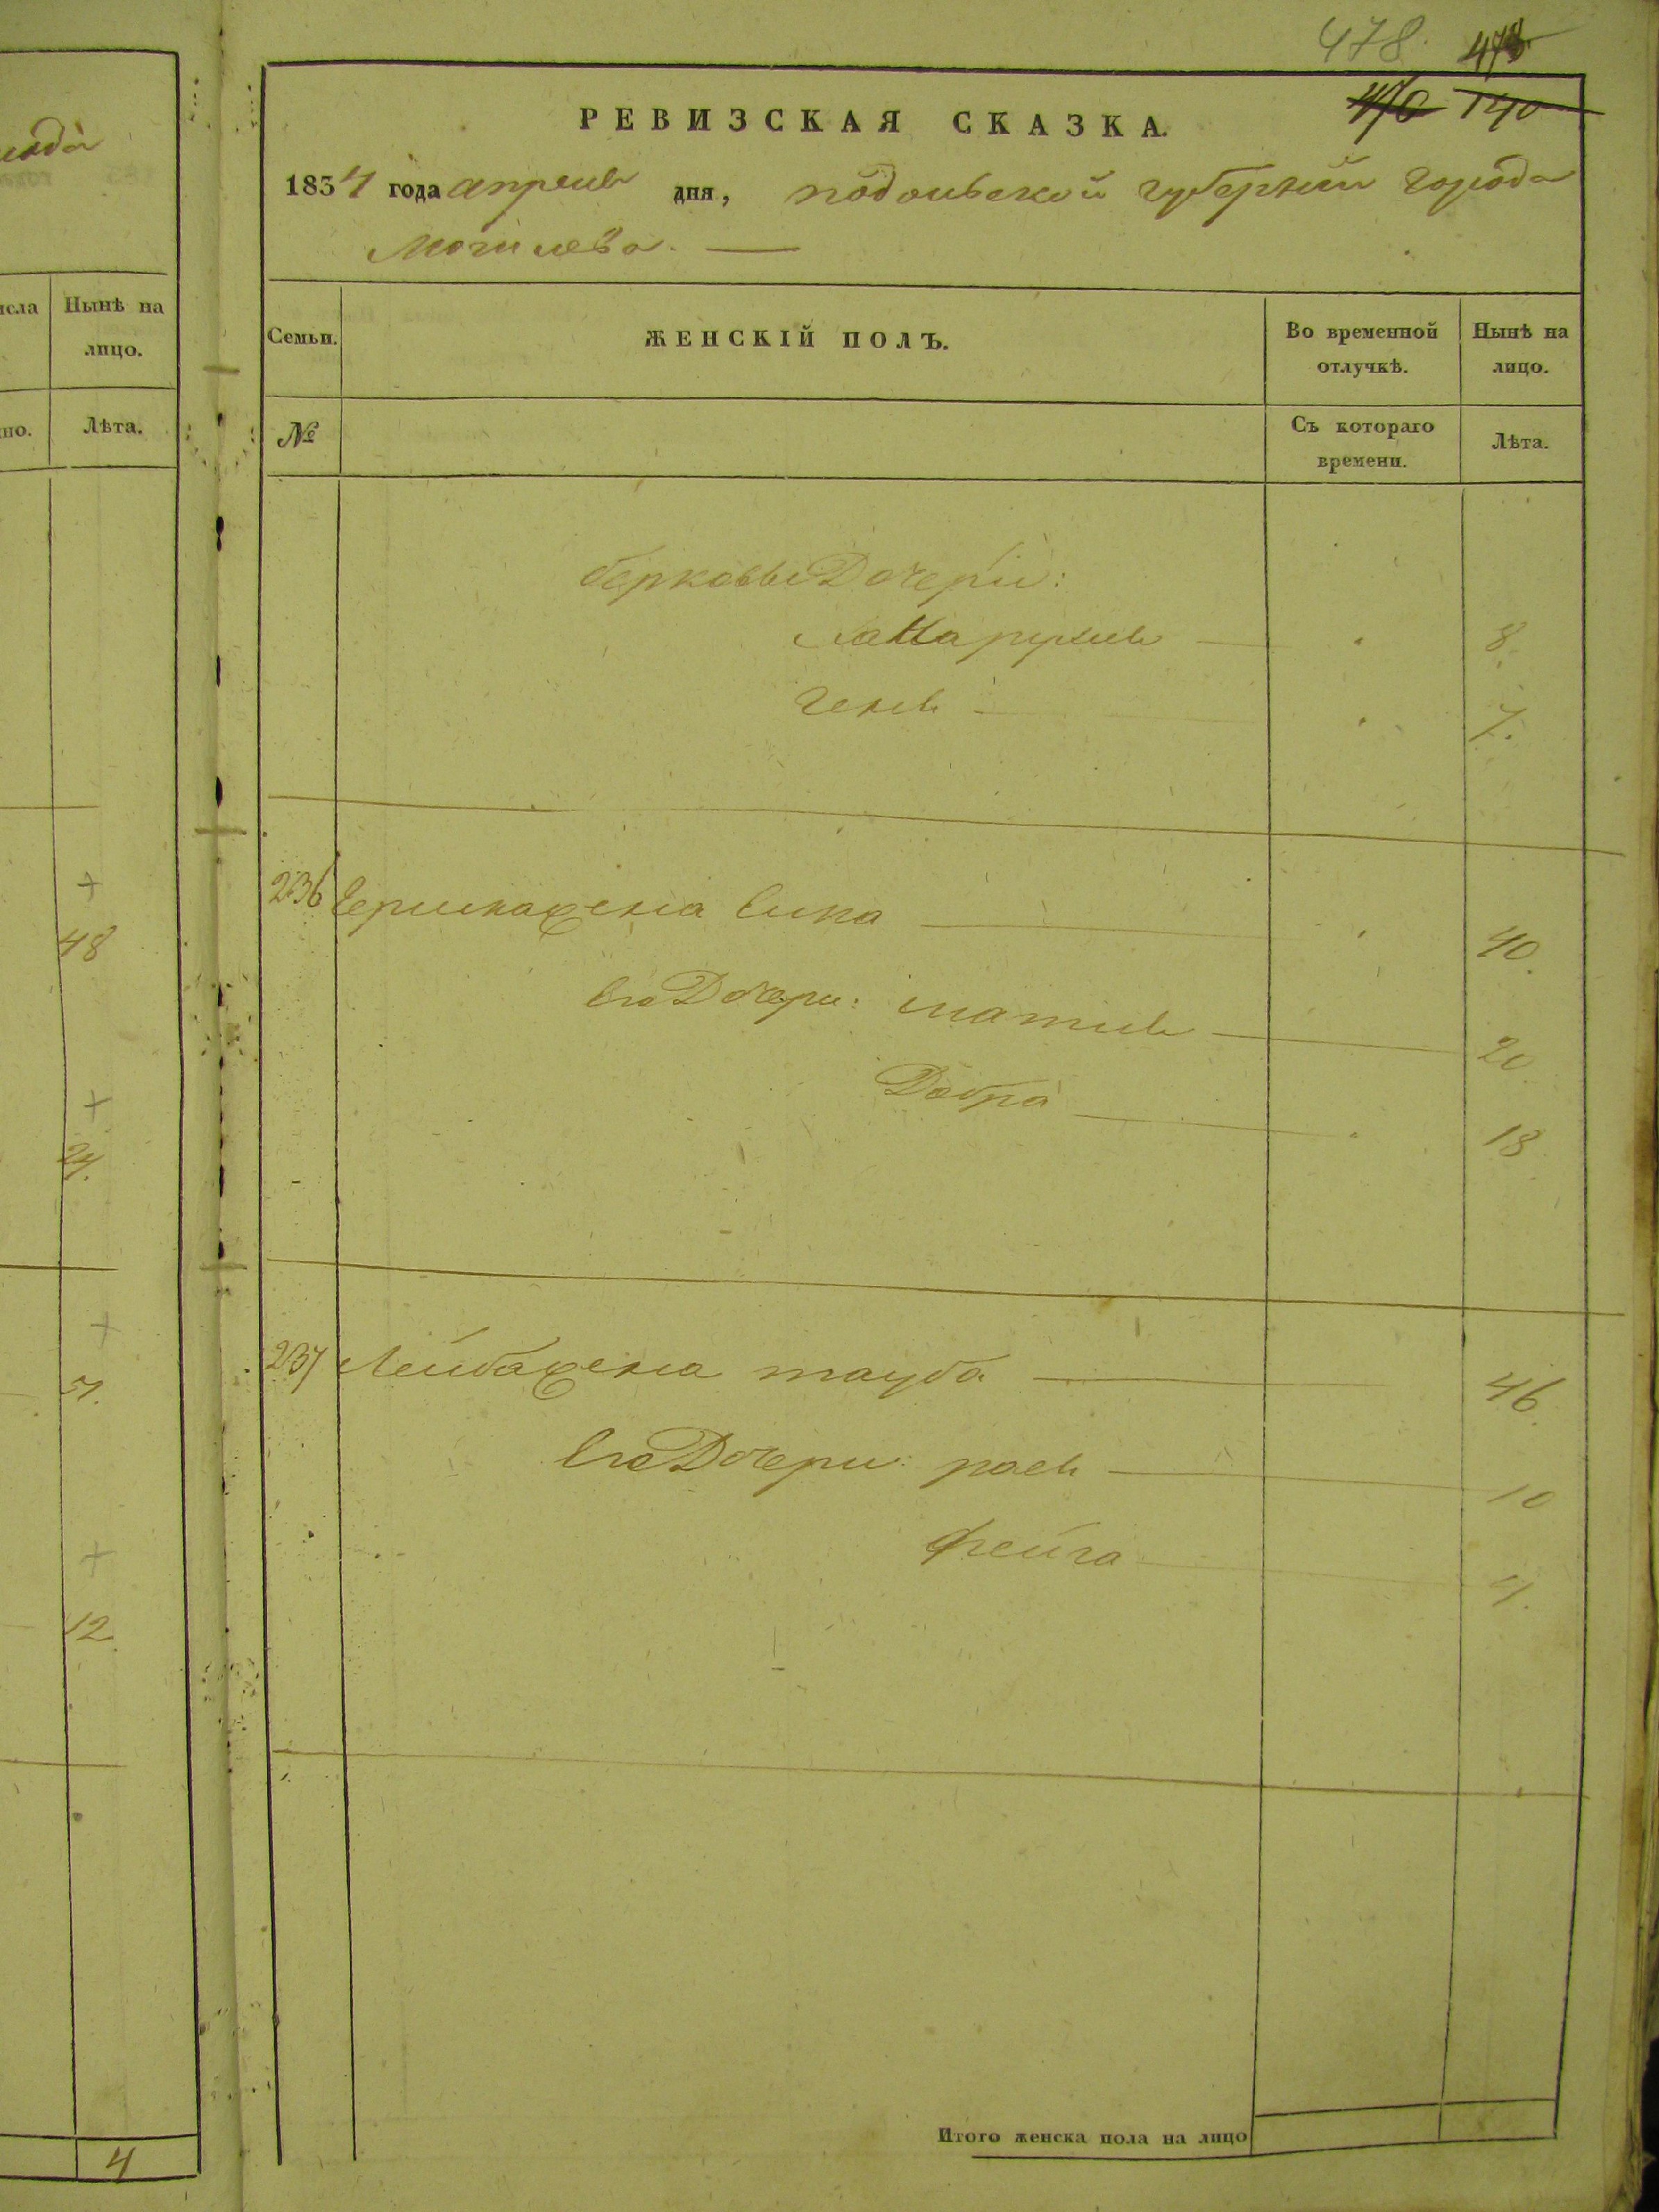 года
исла
Нынѣ на
лицо.
но.
Лѣта.
48
24.
12
4
478.
470 140
РЕВИЗСКАЯ СКАЗКА.
1834 года апреля дня, подольской губернии города
Могилева. —
Семьи.
ЖЕНСКІЙ ПОЛЪ.
Во временной
отлучкѣ.
Нынѣ на
лицо.
№
Съ котораго
времени.
Лѣта.
Берковы Дочерій:
8.
Геня 7.
236 жена 40.
Его Дочери: 20
Добра 18
237 Лейба жена тауба 46.
Его Дочери: рася 10
Фейга
Итого женска пола на лицо